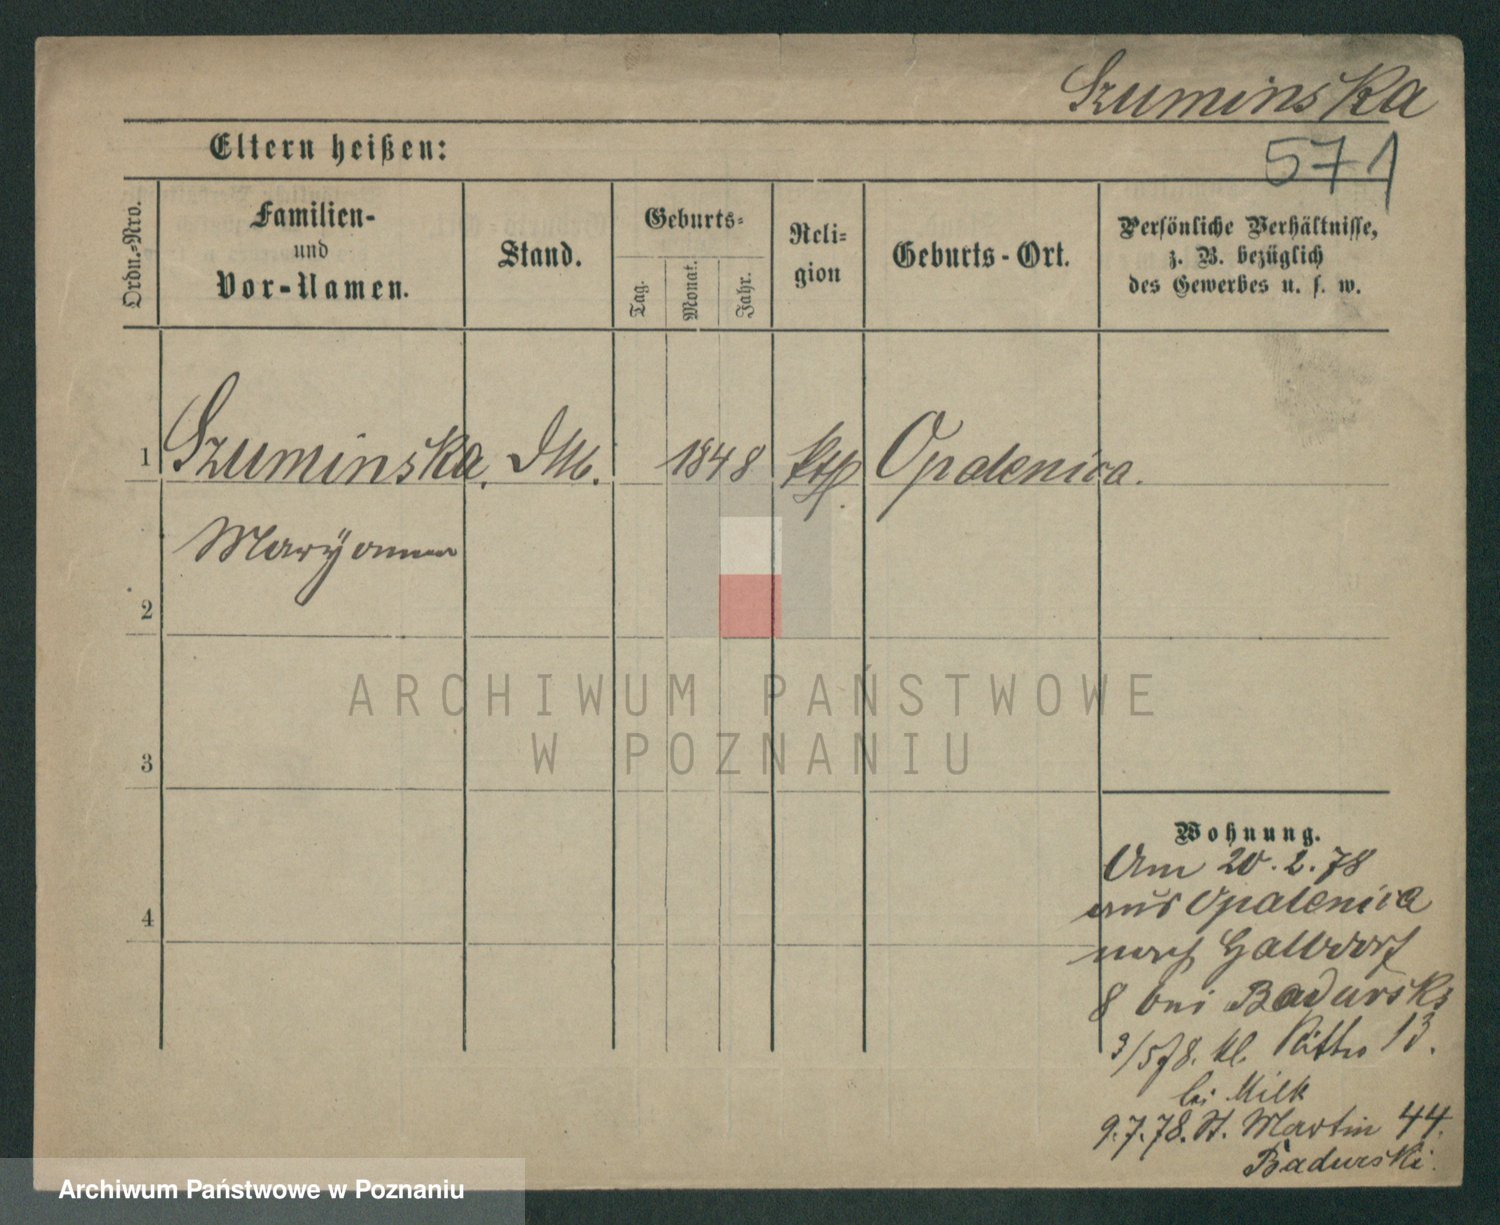 Szuminska
571
Eltern heißen:
Ordn.-Nro.
Familien-
und
Vor-Namen.
Stand.
Geburts-
Tag.
Monat.
Jahr.
Reli-
gion
Geburts-Ort.
Persönliche Verhältnisse,
z. B. bezüglich
des Gewerbes u. s. w.
1 Szuminska. 1848 kth. Opalenica.
Maryanna
2
3
4
ARCHIWUM PAŃSTWOWE
W POZNANIU
Wohnung.
Am 20.2.78
aus Opalenica
nach
8 bei Badurski
3/5 78. kl. Ritter 13.
bei Milk
9.7.78. St. Martin 44.
Badurski.
Archiwum Państwowe w Poznaniu